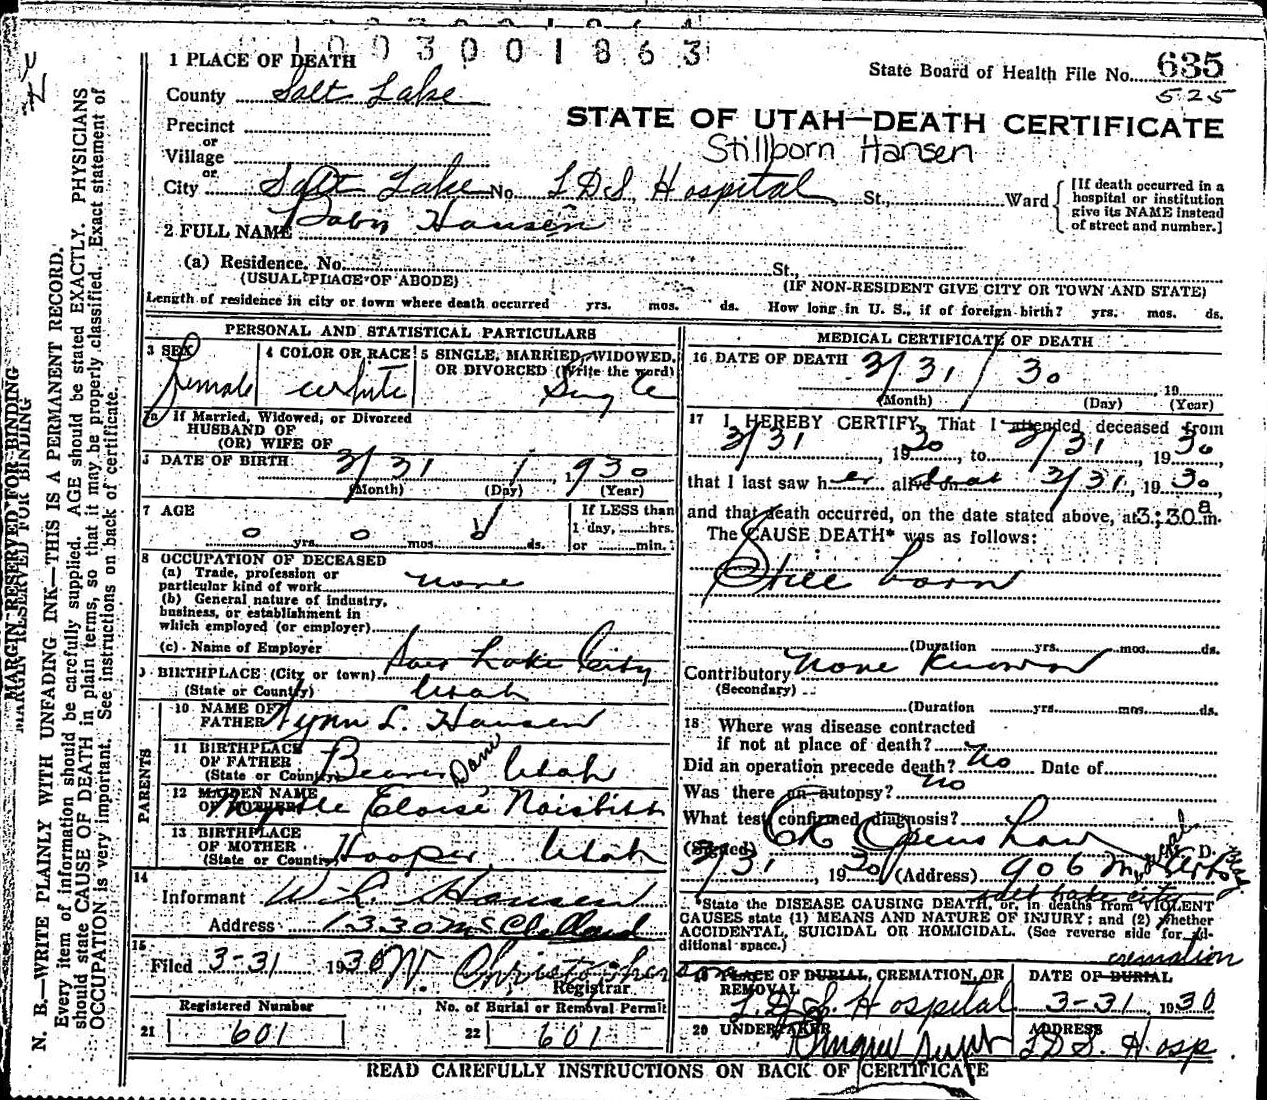 1003001863
1 PLACE OF DEATH
State Board of Health File No. 635
525
County Salt Lake
STATE OF UTAH—DEATH CERTIFICATE
Precinct
or
Stillborn Hansen
Village
or
City Salt Lake No. L.D.S. Hospital St., Ward
[If death occurred in a hospital or institution give its NAME instead of street and number.]
2 FULL NAME Baby Hansen
(a) Residence. No. St.,
(USUAL PLACE OF ABODE) (IF NON-RESIDENT GIVE CITY OR TOWN AND STATE)
Length of residence in city or town where death occurred yrs. mos. ds. How long in U. S., if of foreign birth? yrs. mos. ds.
PERSONAL AND STATISTICAL PARTICULARS
3 SEX 4 COLOR OR RACE 5 SINGLE, MARRIED, WIDOWED, OR DIVORCED (Write the word)
Female white Single
5a If Married, Widowed, or Divorced
HUSBAND OF
(OR) WIFE OF
6 DATE OF BIRTH 3/31 / 1930
(Month) (Day) (Year)
7 AGE If LESS than
1 day, hrs.
0 yrs. 0 mos. 0 ds. or min.
8 OCCUPATION OF DECEASED
(a) Trade, profession or
particular kind of work none
(b) General nature of industry,
business, or establishment in
which employed (or employer)
(c) Name of Employer
9 BIRTHPLACE (City or town) Salt Lake City
(State or Country) Utah
PARENTS
10 NAME OF FATHER Lynn L. Hansen
11 BIRTHPLACE OF FATHER Beaver Dam Utah
(State or Country)
12 MAIDEN NAME OF MOTHER Myrtle Eloise Naisbitt
13 BIRTHPLACE OF MOTHER Hooper, Utah
(State or Country)
14
Informant W. L. Hansen
Address 1330 McClelland
15
Filed 3-31 1930 W. Christopherson
Registrar
Registered Number No. of Burial or Removal Permit
21 601 22 601
MEDICAL CERTIFICATE OF DEATH
16 DATE OF DEATH 3/31 / 30 19
(Month) (Day) (Year)
17 I HEREBY CERTIFY, That I attended deceased from
3/31, 1930, to 3/31, 1930,
that I last saw her alive on dead 3/31, 1930,
and that death occurred, on the date stated above, at 3:30 a m.
The CAUSE DEATH* was as follows:
Still born
(Duration yrs. mos. ds.
Contributory None Known
(Secondary)
(Duration yrs. mos. ds.
18 Where was disease contracted
if not at place of death?
Did an operation precede death? No Date of
Was there an autopsy? no
What test confirmed diagnosis?
(Signed) M. D.
3/31, 1930 (Address) 906 Medical Arts Bldg
Salt Lake City
*State the DISEASE CAUSING DEATH, or, in deaths from VIOLENT
CAUSES state (1) MEANS AND NATURE OF INJURY; and (2) whether
ACCIDENTAL, SUICIDAL OR HOMICIDAL. (See reverse side for additional space.)
cremation
19 PLACE OF BURIAL, CREMATION, OR REMOVAL DATE OF BURIAL
L.D.S. Hospital 3-31 1930
20 UNDERTAKER ADDRESS
L.D.S. Hosp.
READ CAREFULLY INSTRUCTIONS ON BACK OF CERTIFICATE
MARGIN RESERVED FOR BINDING
N. B.—WRITE PLAINLY WITH UNFADING INK—THIS IS A PERMANENT RECORD.
Every item of information should be carefully supplied. AGE should be stated EXACTLY. PHYSICIANS
should state CAUSE OF DEATH in plain terms, so that it may be properly classified. Exact statement of
OCCUPATION is very important. See instructions on back of certificate.